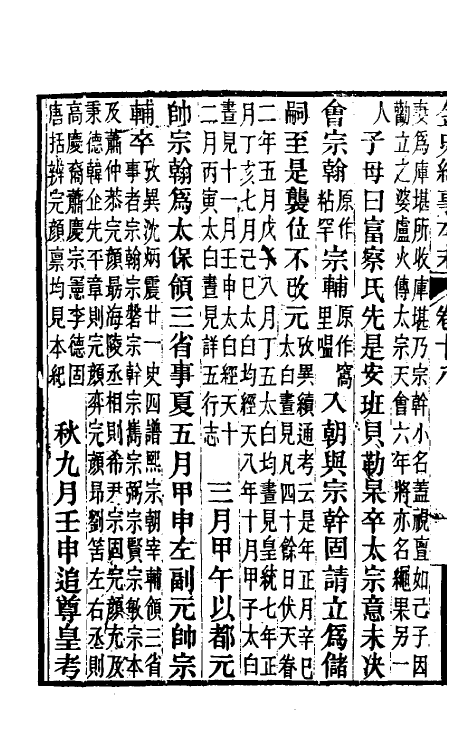 卷十八
妻為庫堪所收庫堪乃宗幹小名蓋視亶如己子因
勸立之婆盧火傳太宗天會六年將亦名繩果另一
人子母曰富察氏先是安班貝勒杲卒太宗意未決
會宗翰原作粘罕宗輔原作窩里嗢入朝與宗幹固請立為儲
嗣至是襲位不改元攷異續通考云是年正月辛巳
太白晝見凡四十餘日伏天眷
二年五月戊午八月丁五太白均晝見皇統七年正
月丁亥七月己巳太白均經天八年十月甲子太白
晝見十一月壬申太白經天十
二月丙寅太白晝見詳五行志三月甲午以都元
帥宗翰為太保領三省事夏五月甲申左副元帥宗
輔卒攷異沈炳震廿一史四譜熙宗朝宰輔領三省
事者宗翰宗磐宗幹宗雋宗弼宗賢宗敏宗本
及蕭仲恭完顏勗海陵丞相則希尹宗固完顏充及
秉德韓企先平章則完顏奔完顏昂劉筈左右丞則
高慶裔蕭慶宗憲李德固
唐括辨完顏稟均見本紀秋九月壬申追尊皇考